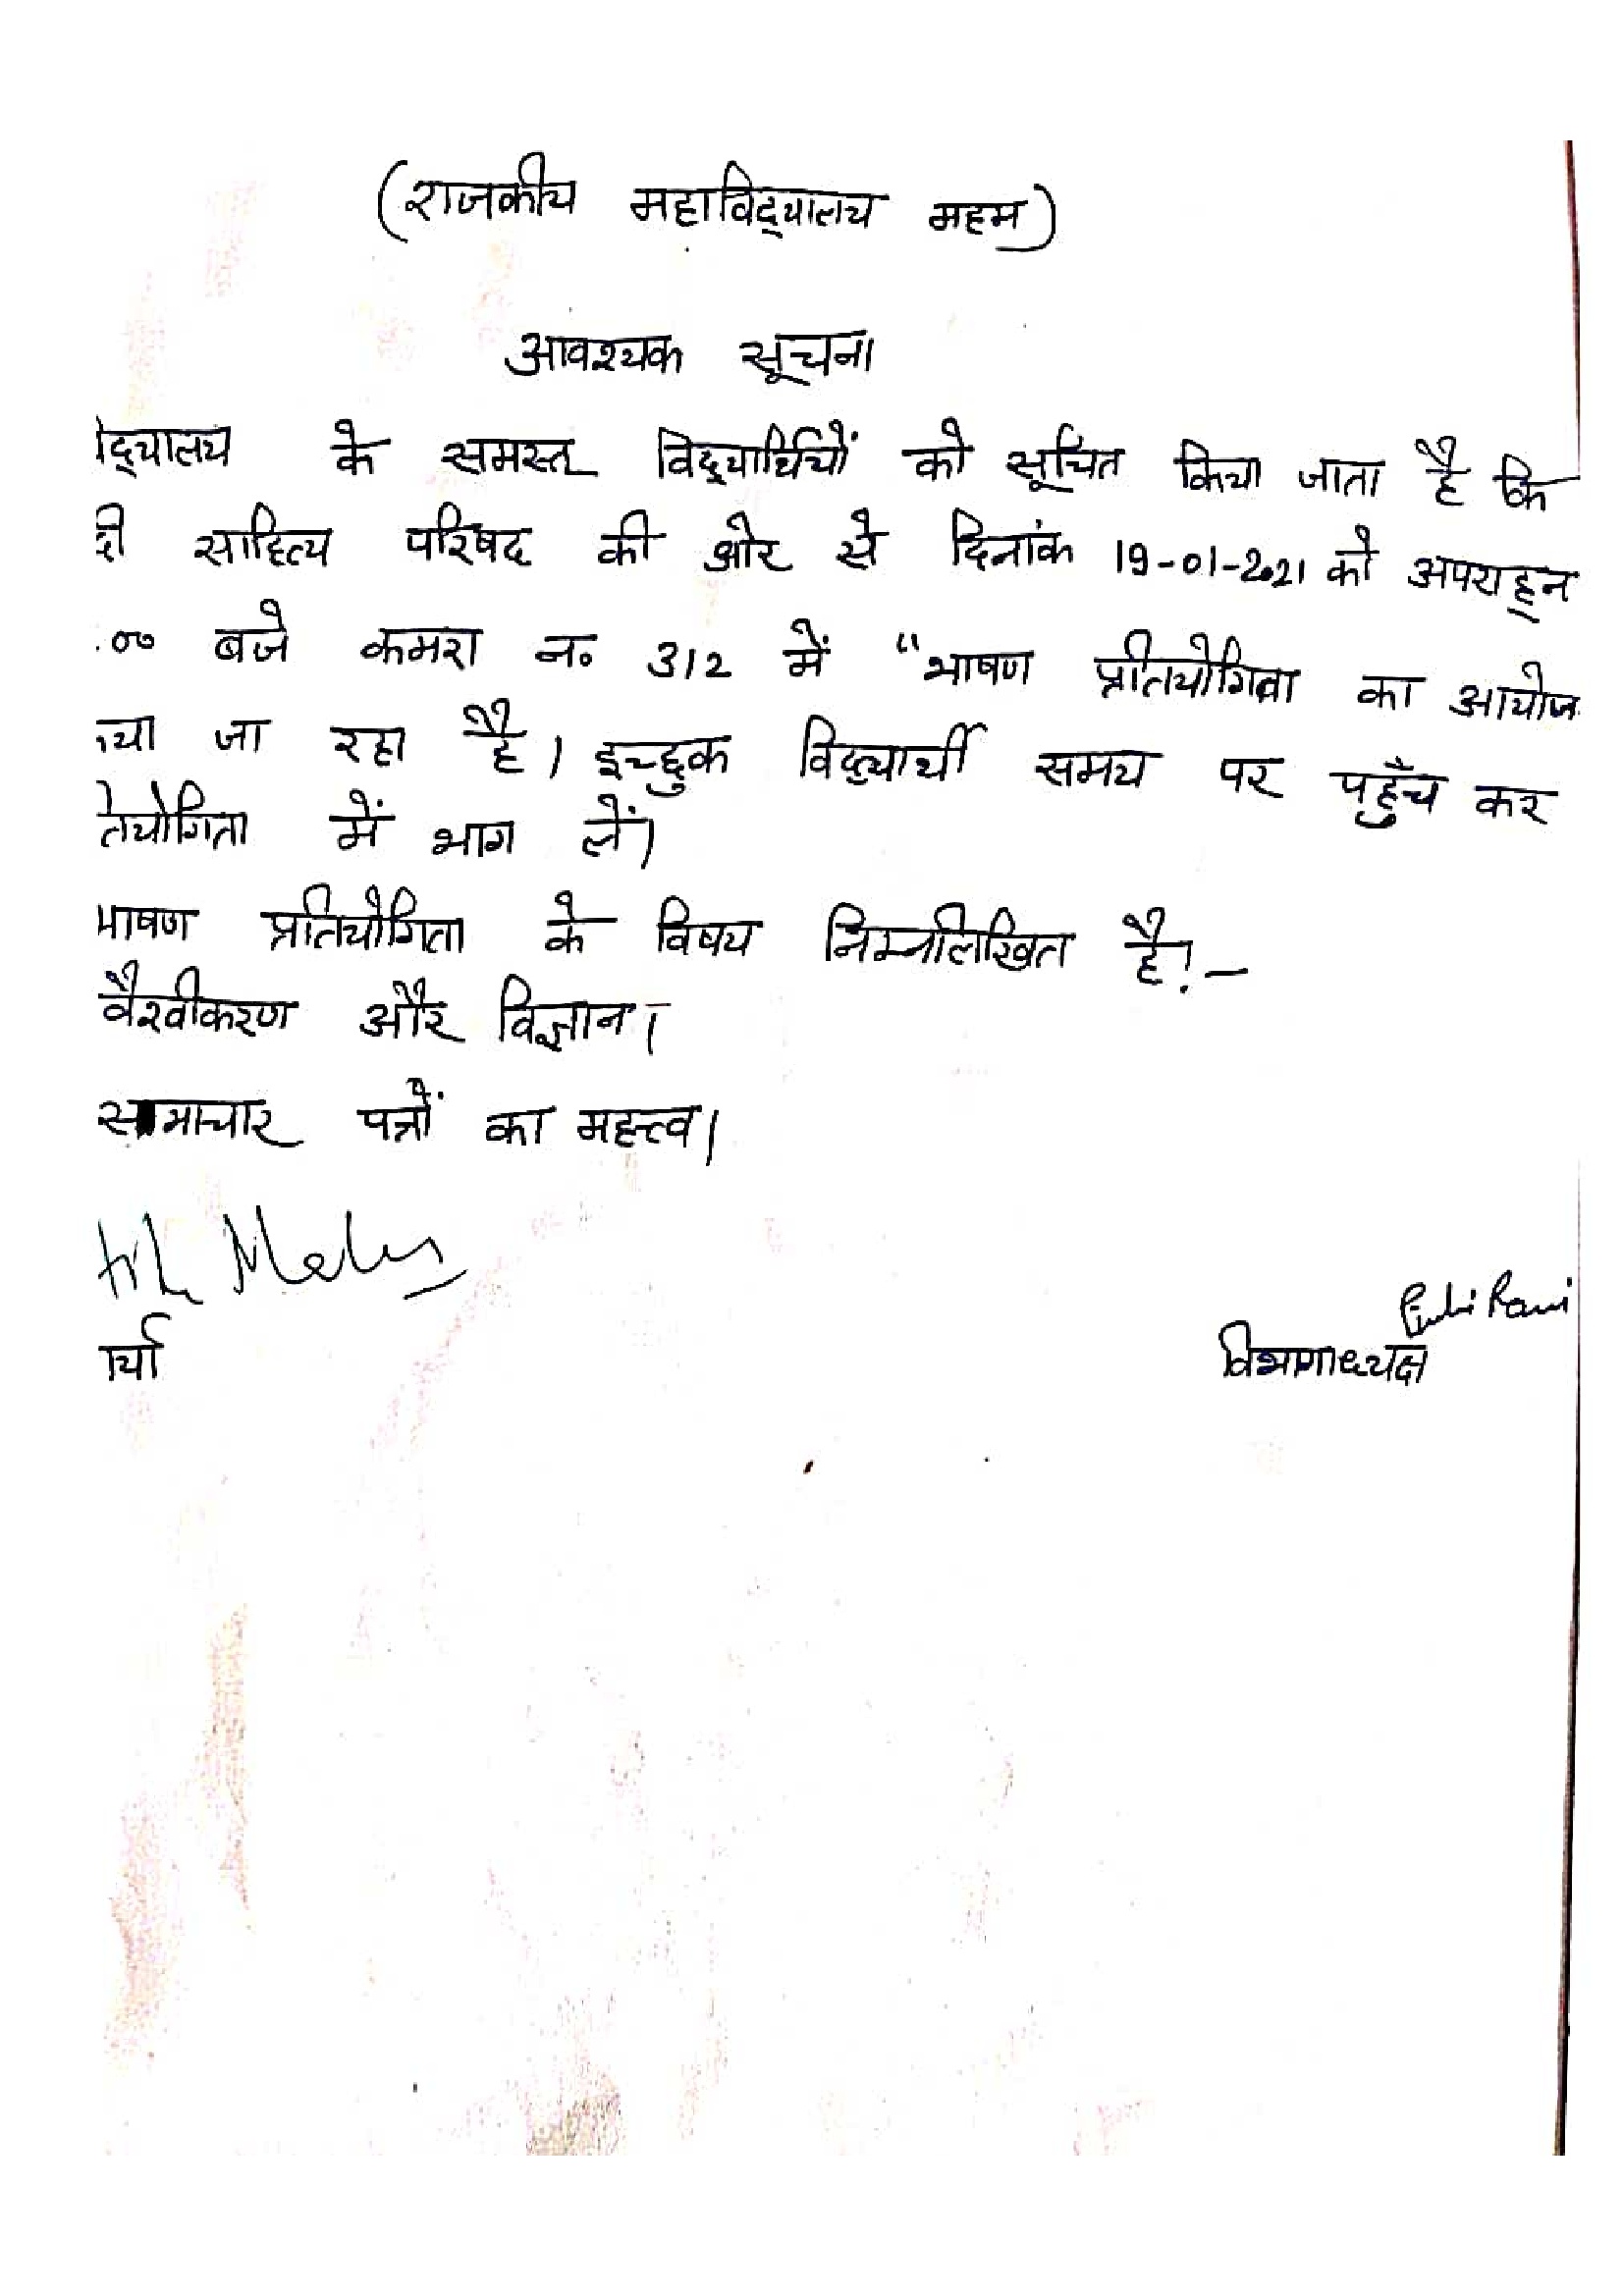 (राजकीय महाविद्यालय महम)
आवश्यक सूचना
िद्यालय के समस्त विद्यार्थियों को सूचित किया जाता है कि
दी साहित्य परिषद की ओर से दिनांक 19-01-2021 को अपराह्न
.00 बजे कमरा न० 312 में "भाषण प्रतियोगिता का आयोज
या जा रहा है। इच्छुक विद्यार्थी समय पर पहुँच कर
तियोगिता में भाग लें।
भाषण प्रतियोगिता के विषय निम्नलिखित है:-
वैश्वीकरण और विज्ञान।
समाचार पत्रों का महत्त्व।
र्या
Rani
विभागाध्यक्ष